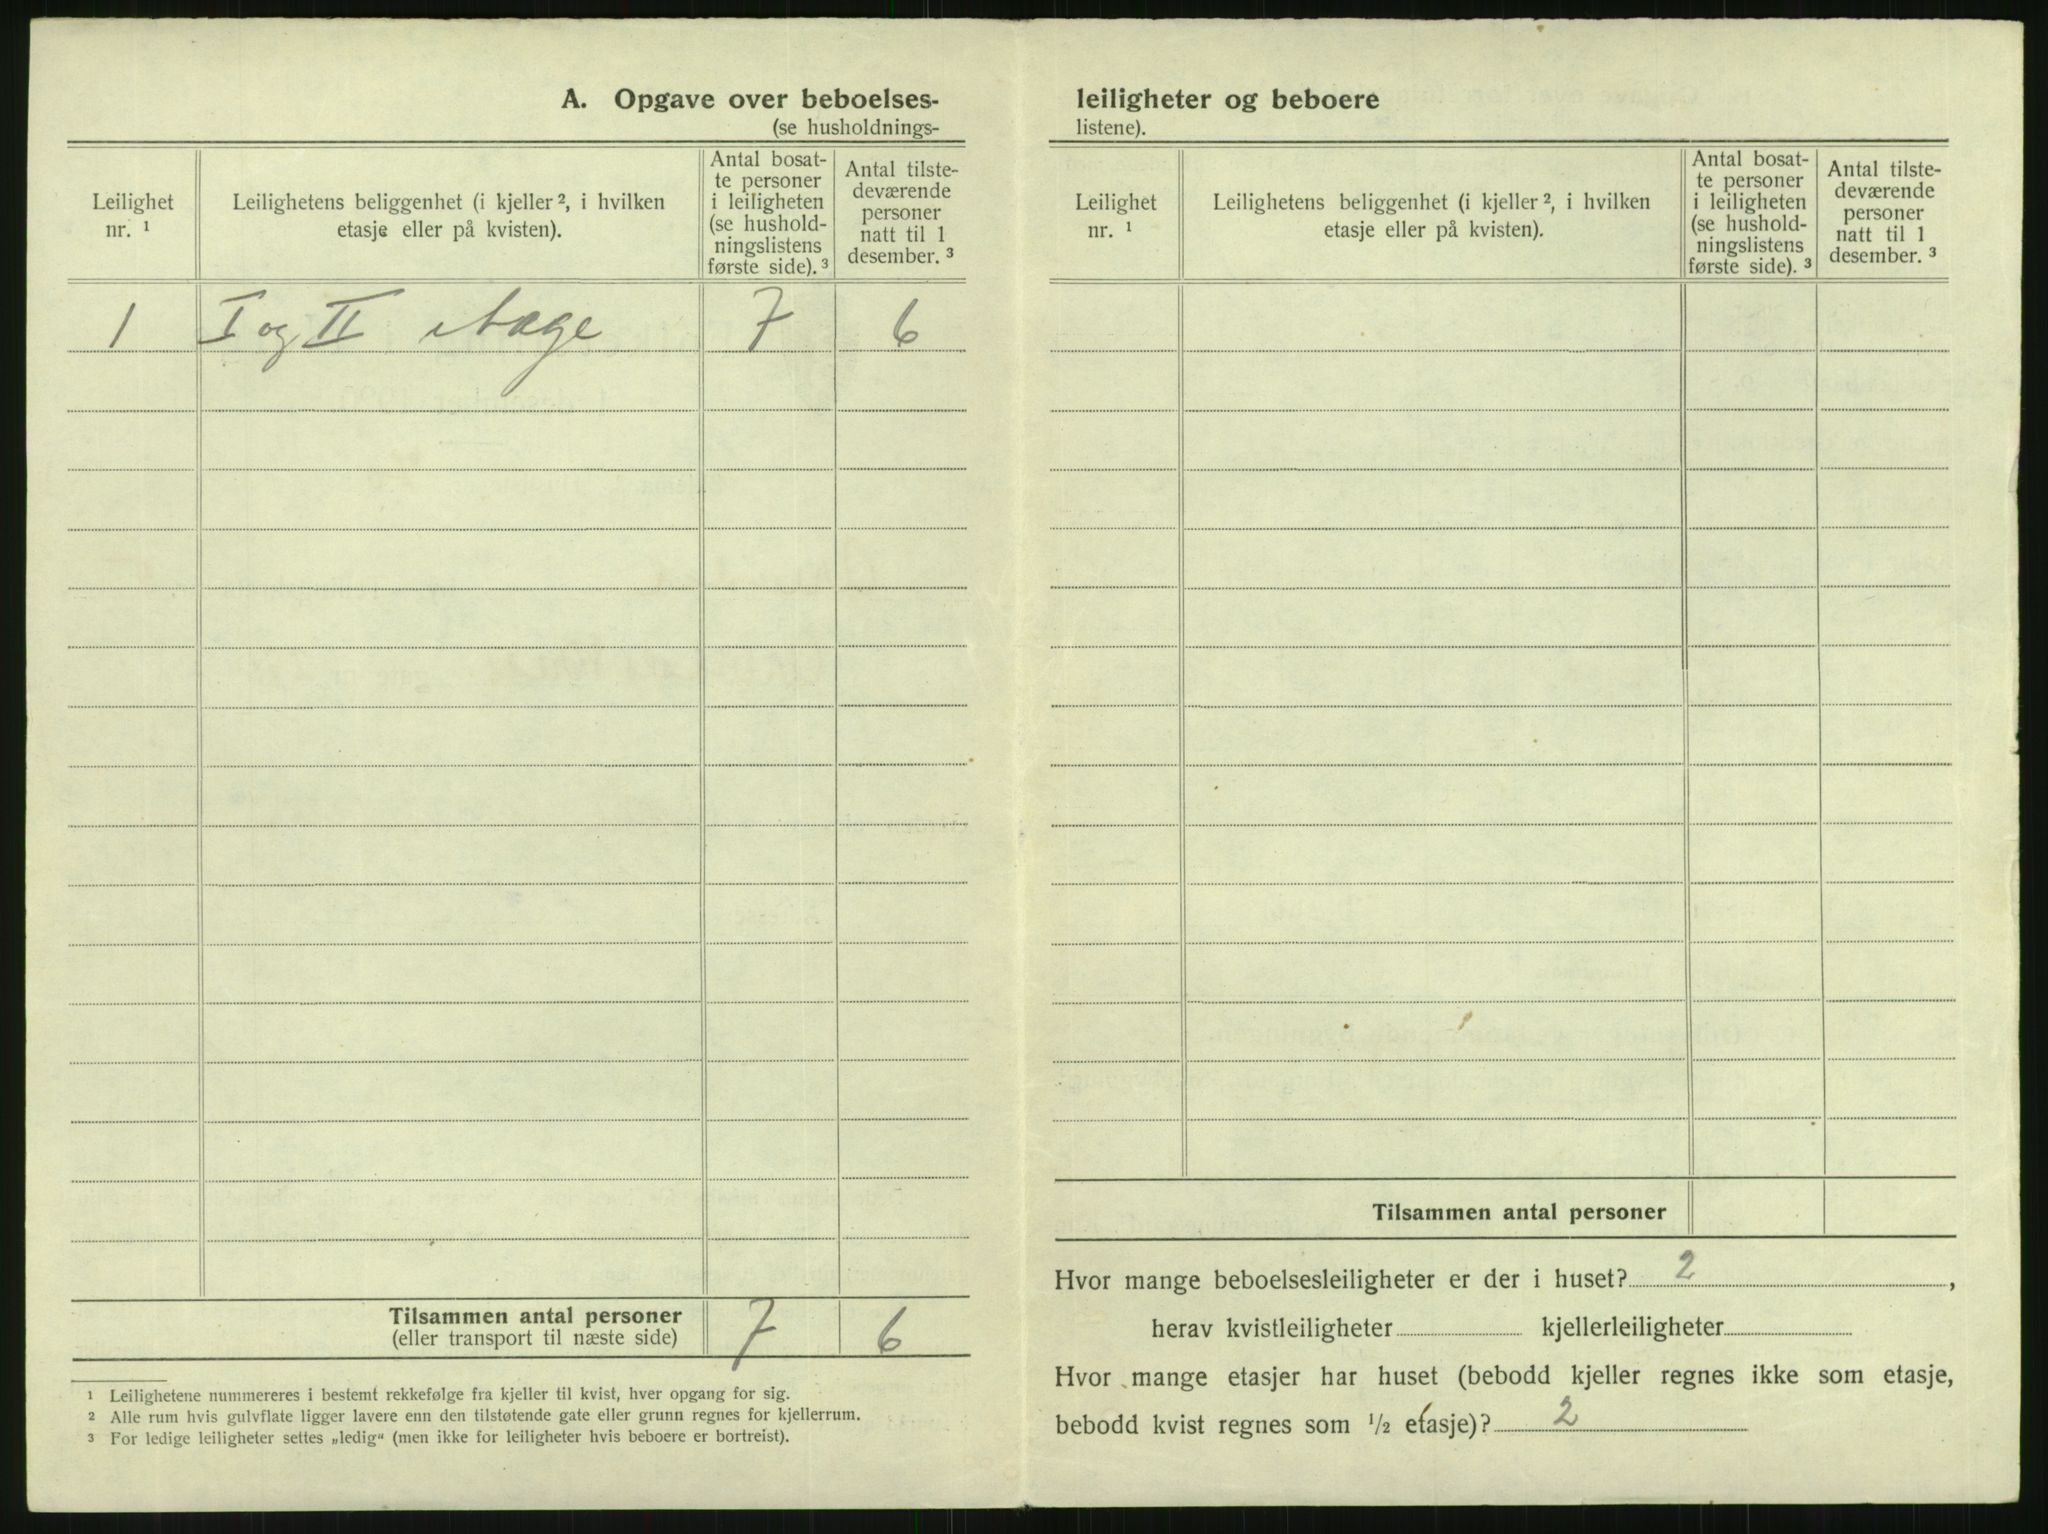 A. Opgave over beboelses-
(se husholdnings-
Leilighet
nr. ¹
Leilighetens beliggenhet (i kjeller ², i hvilken
etasje eller på kvisten).
Antal bosat-
te personer
i leiligheten
(se hushold-
ningslistens
første side). ³
Antal tilste-
deværende
personer
natt til 1
desember. ³
1 I og II etage 7 6
Tilsammen antal personer 7 6
(eller transport til næste side)
¹ Leilighetene nummereres i bestemt rekkefølge fra kjeller til kvist, hver opgang for sig.
² Alle rum hvis gulvflate ligger lavere enn den tilstøtende gate eller grunn regnes for kjellerrum.
³ For ledige leiligheter settes „ledig“ (men ikke for leiligheter hvis beboere er bortreist).
leiligheter og beboere
listene).
Leilighet
nr. ¹
Leilighetens beliggenhet (i kjeller ², i hvilken
etasje eller på kvisten).
Antal bosat-
te personer
i leiligheten
(se hushold-
ningslistens
første side). ³
Antal tilste-
deværende
personer
natt til 1
desember. ³
Tilsammen antal personer
Hvor mange beboelsesleiligheter er der i huset? 2,
herav kvistleiligheter kjellerleiligheter
Hvor mange etasjer har huset (bebodd kjeller regnes ikke som etasje,
bebodd kvist regnes som ½ etasje)? 2